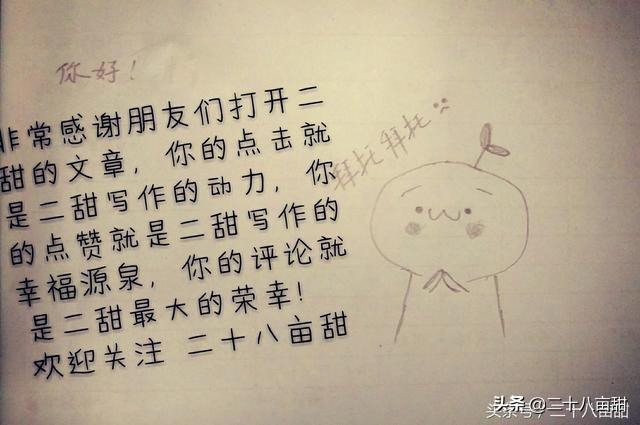 你好!
非常感谢朋友们打开二
甜的文章,你的点击就
是二甜写作的动力,你
的点赞就是二甜写作的
幸福源泉,你的评论就
是二甜最大的荣幸!
欢迎关注 二十八亩甜
拜托拜托
头条 @二十八亩甜
头条号:二十八亩甜